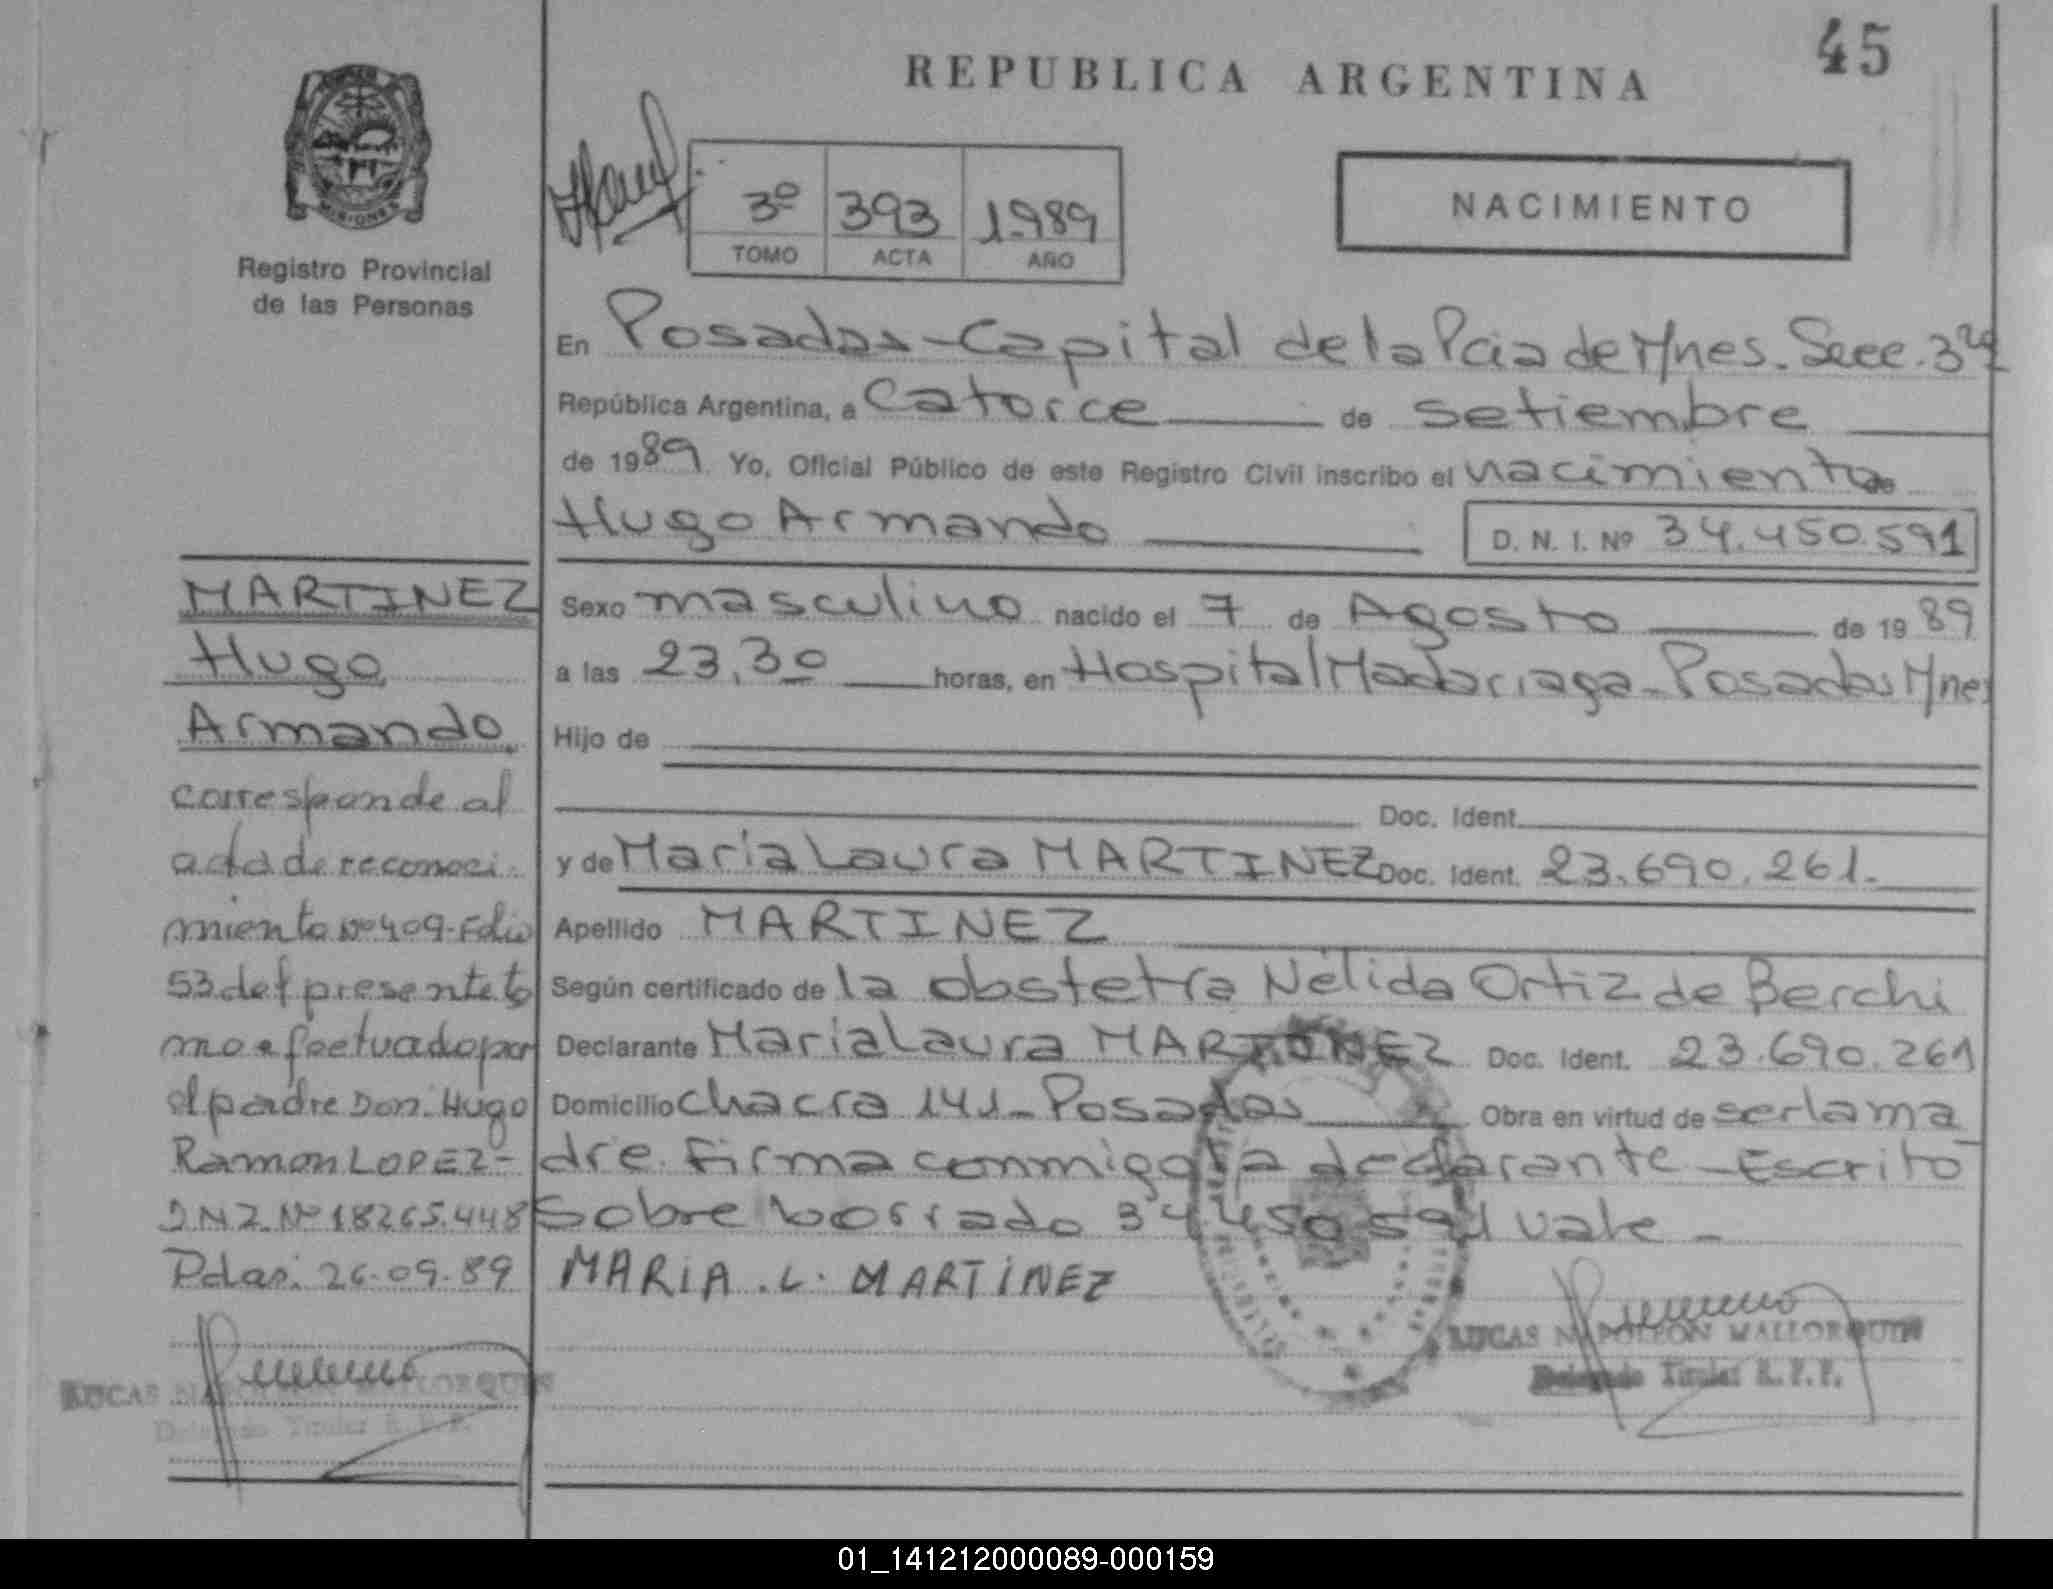 45
REPUBLICA ARGENTINA
MISIONES
Registro Provincial
de las Personas
3º 393 1989
TOMO ACTA AÑO
NACIMIENTO
En Posadas-Capital de la Pcia de Mnes. Secc. 3ra
República Argentina, a Catorce de setiembre
de 1989 Yo, Oficial Público de este Registro Civil inscribo el nacimiento de
Hugo Armando D. N. I. Nº 34.450.591
Sexo masculino nacido el 7 de Agosto de 1989
a las 23,30 horas, en Hospital Madariaga-Posadas Mnes
Hijo de
Doc. Ident.
y de Maria Laura MARTINEZ Doc. Ident. 23.690.261.
Apellido MARTINEZ
Según certificado de la obstetra Nélida Ortiz de Berchi
Declarante Maria Laura MARTINEZ Doc. Ident. 23.690.261
Domicilio chacra 141-Posadas Obra en virtud de ser la ma
dre. Firma conmigo la declarante-Escrito
sobre borrado 34.450.591 vale-
MARIA . L. MARTINEZ
LUCAS NAPOLEON MALLORQUIN
Delegado Titular R.P.P.
MARTINEZ
Hugo
Armando
corresponde al
acta de reconoci-
miento Nº 409-Folio
53 del presente to
mo efectuado por
el padre Don Hugo
Ramon LOPEZ-
DNI. Nº 18265.448
Pdas. 26-09-89
LUCAS NAPOLEON MALLORQUIN
Delegado Titular R.P.P.
01_141212000089-000159